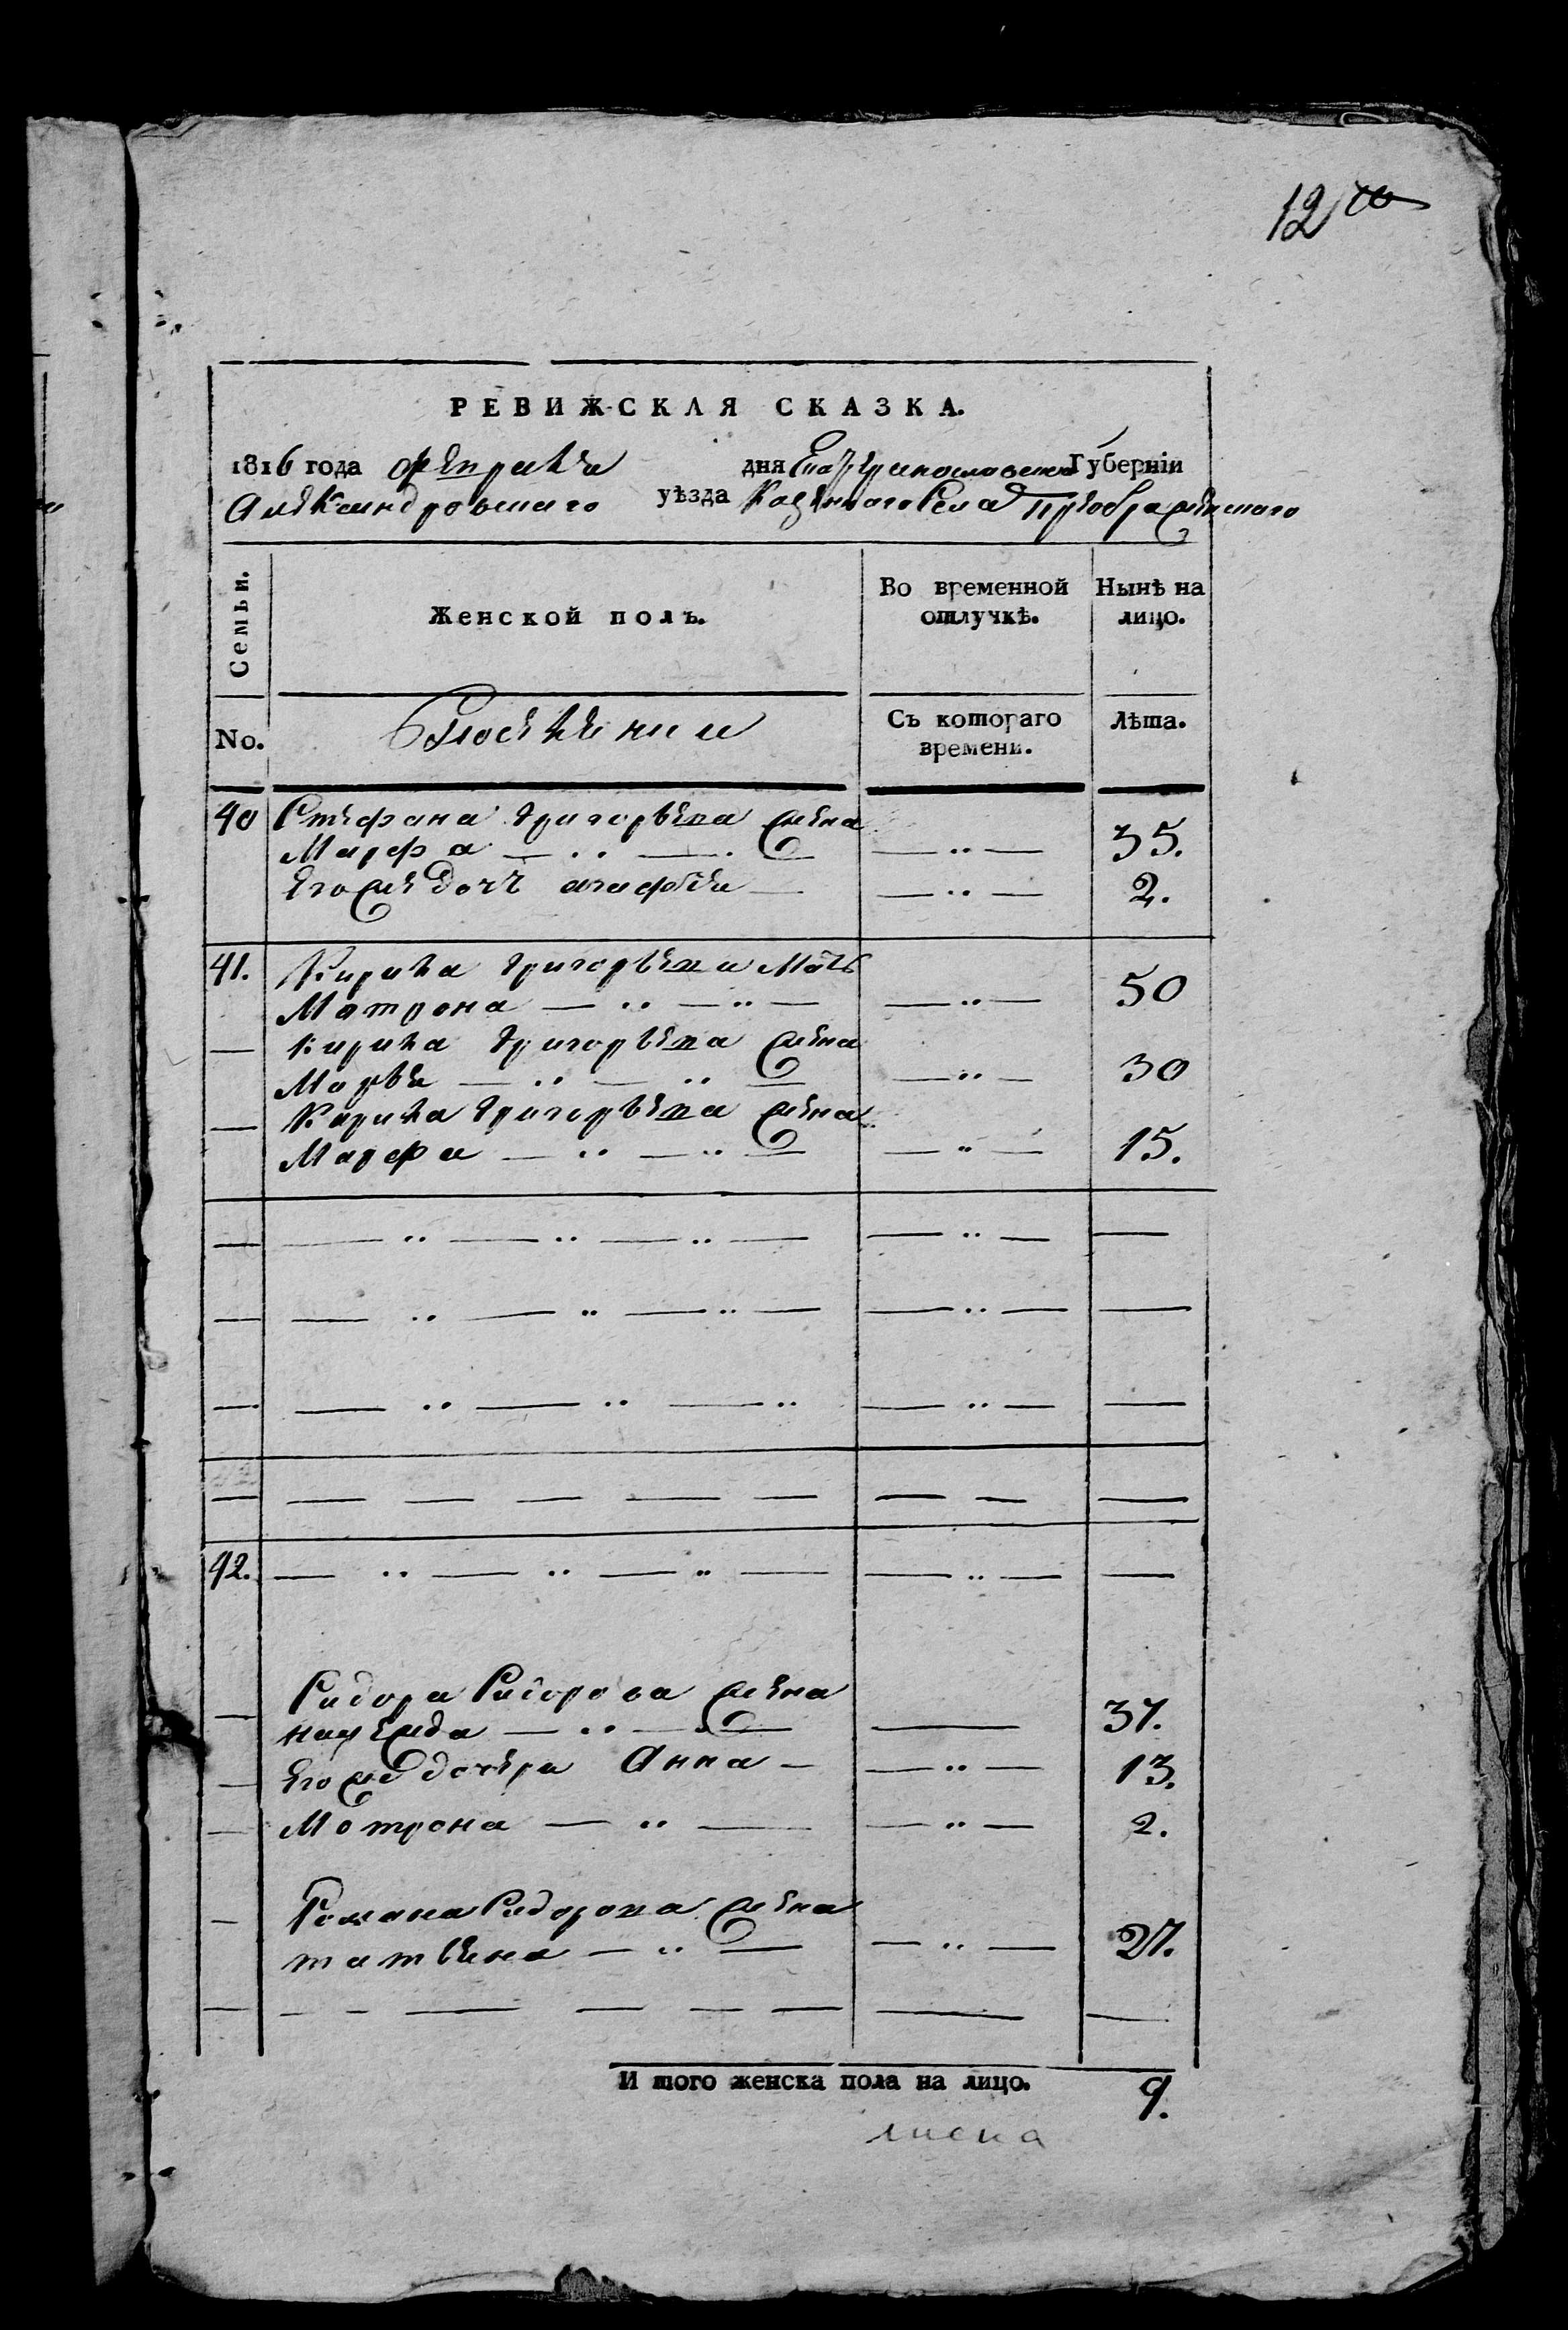 12
РЕВИЖСКАЯ СКАЗКА.
1816 года февраля дня Екатеринославской Губерніи
Александровскаго уѣзда Казеннаго Села Преображенскаго
Семьи.
Женской полъ.
Во временной отлучкѣ.
Нынѣ на лицо.
No.
Съ котораго времени.
Лѣта.
40 Стефана Григорьева жена
Марфа — .. — . — — .. — 35.
Егожъ дочь агафья — — .. — 2.
41. Кирика Григорьева Мать
Матрона — .. — .. — — .. — 50
— Кирика Григорьева жена
Марья — .. — .. — — .. — 30
— Кирика Григорьева жена
Марфа — .. — .. — — .. — 15.
42.
— Сидора Сидорова жена
надежда — .. — — 37.
— Егоже дочери Анна — — .. — 13.
— Мотрона — .. — — .. — 2.
— Романа Сидорова жена
татьяна — .. — — .. — 27.
И того женска пола на лицо. 9.